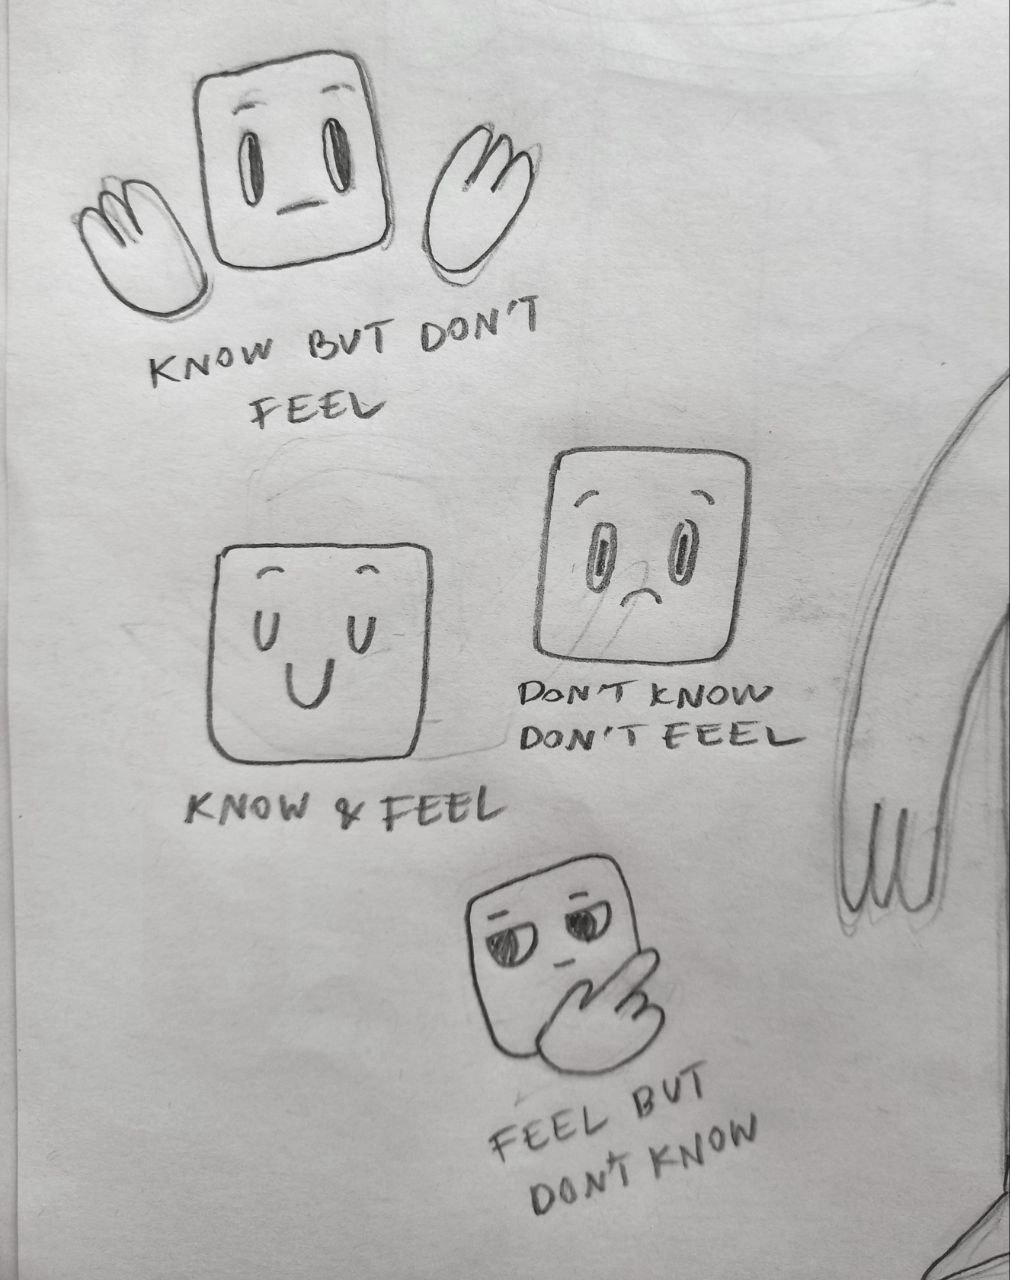 KNOW BUT DON'T
FEEL
DON'T KNOW
DON'T FEEL
KNOW & FEEL
FEEL BUT
DON'T KNOW